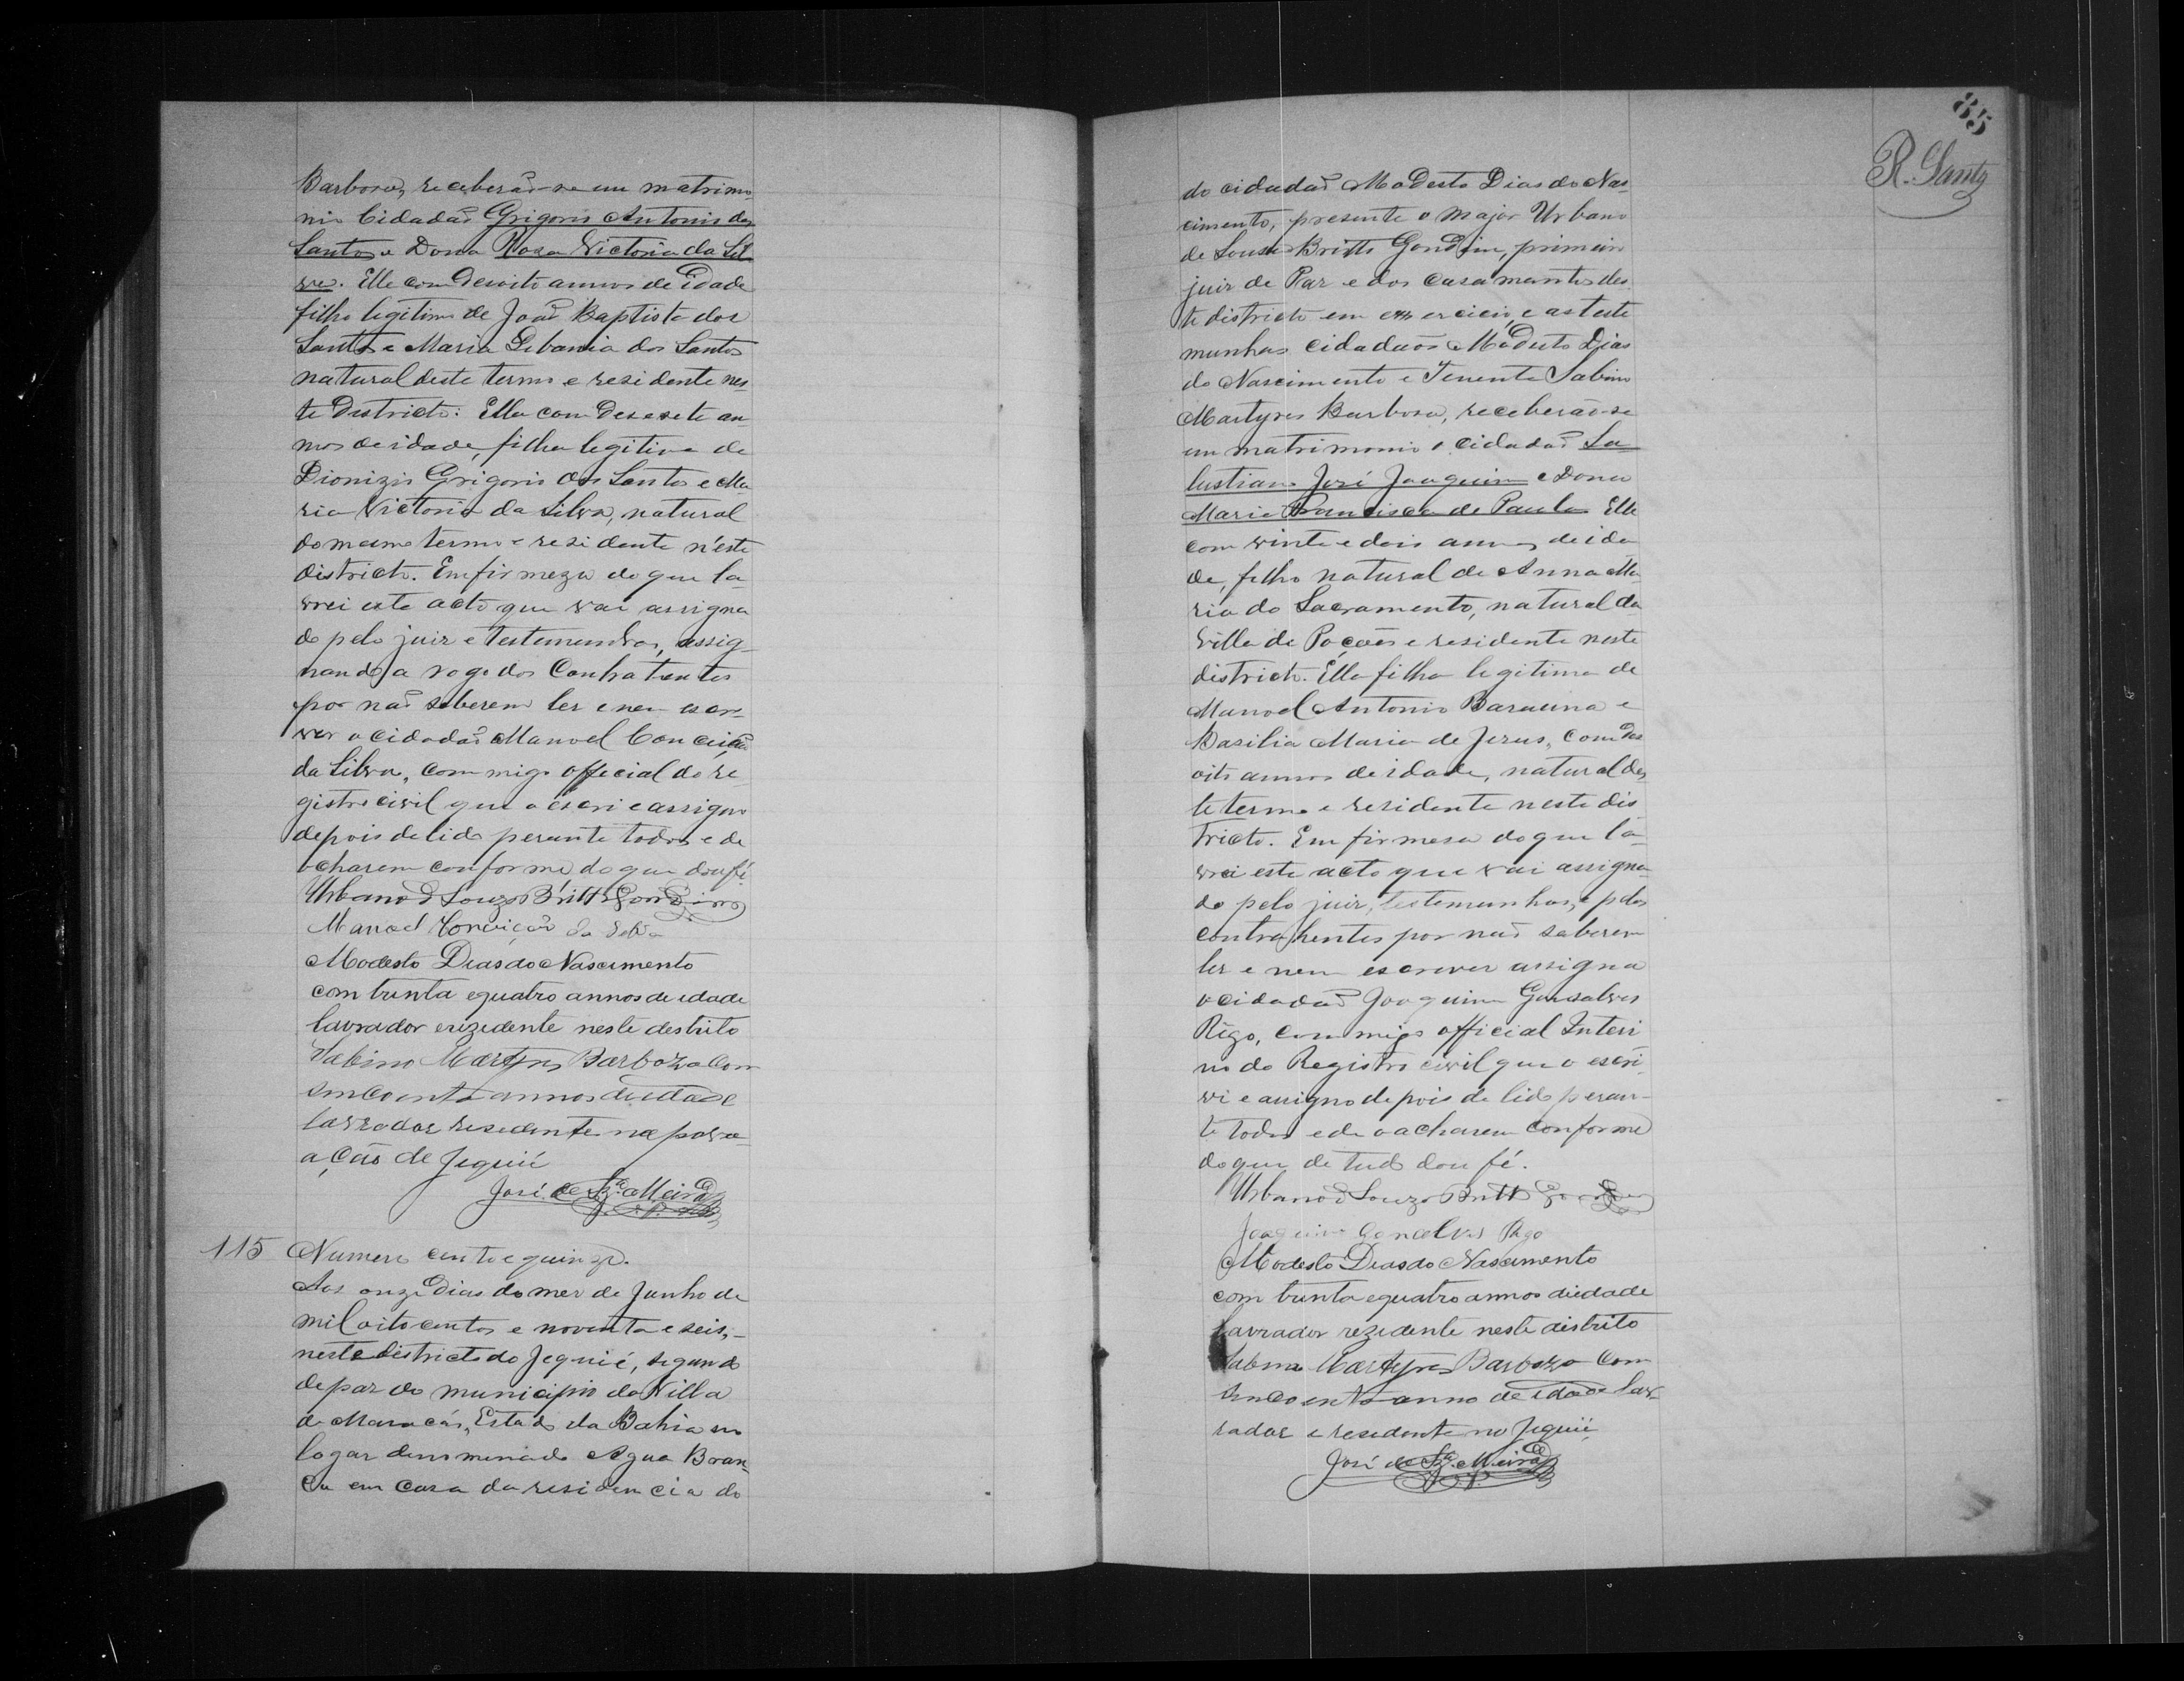 Barbosa, receberão-se em matrimo-
nio Cidadão Grigorio Antonio dos
Santos e Dona Rosa Victoria da Sil
va. Elle com desoito annos de idade
filho legitimo de João Baptista dos
Santos e Maria Libania dos Santos
natural deste termo e residente nes
te Districto: Ella com desesete an
nos de idade, filha legitima de
Dionizio Grigorio dos Santos e Ma
ria Victoria da Silva, natural
do mesmo termo e residente n'este
districto. Em firmeza do que la-
vrei este acto que vai assigna
do pelo juiz e testemunhas, assig-
nando a rogo dos Contratentes
por não saberem ler e nem escre-
ver o cidadão Manoel Conceição
da Silva, commigo official do re-
gistro civil que o escri e assigno
depois de lido perante todos e de
acharem conforme do que dou fé.
Urbano de Souza Britto Gondim
Manoel Conceição da Silva
Modesto Dias do Nascimento
com trinta e quatro annos de idade
lavrador erezedente neste destrito
Sabino Martyres Barbozo com
sincoenta annos de idade
lavrador resedente na povo
ação de Jequié
José de Sza Meira
115 Numero cento e quinze.
Aos onze dias do mez de Junho de
mil oitocentos e noventa e seis,
neste districto do Jequié, segundo
de paz do municipio da Villa
de Maracás, Estado da Bahia no
logar denominado Agua Bran-
ca em casa da residencia do
85
R. Santos
do cidadão Modesto Dias do Nas-
cimento, presente o major Urbano
de Sousa Britto Gondim, primeiro
juiz de Paz e dos casamentos des
te districto em exercicio, e as teste
munhas cidadãos Modesto Dias
do Nascimento e Tenente Sabino
Martyres Barbosa, receberão-se
em matrimonio o cidadão Sa
lustiano José Joaquim e Dona
Maria Francisca de Paula Elle
com vinte e dois annos de ida
de, filho natural de Anna Ma
ria do Sacramento, natural da
Villa de Poções e residente neste
districto. Ella filha legitima de
Manoel Antonio Baraúna e
Basilia Maria de Jesus, com des
oito annos de idade, natural des
te termo e residente neste dis
tricto. Em firmesa do que la-
vrei este acto que vai assigna-
do pelo juiz, testemunhas, e pelos
contrahentes por não saberem
ler e nem escrever assigna
o cidadão Joaquim Gonsalves
Rigo, commigo official Interi
no do Registro civil que o escri-
vi e assigno depois de lido peran-
te todos e de o acharem conforme
do que de tudo dou fé.
Urbano de Souza Britto Gondim
Joaquim Goncalves Rigo
Modesto Dias do Nascimento
com trinta e quatro annos de idade
lavrador rezedente neste distrito
Sabino Martyres Barbozo com
sincoenta anno de idade lav-
rador e resedente no Jequié
José de Sza Meira